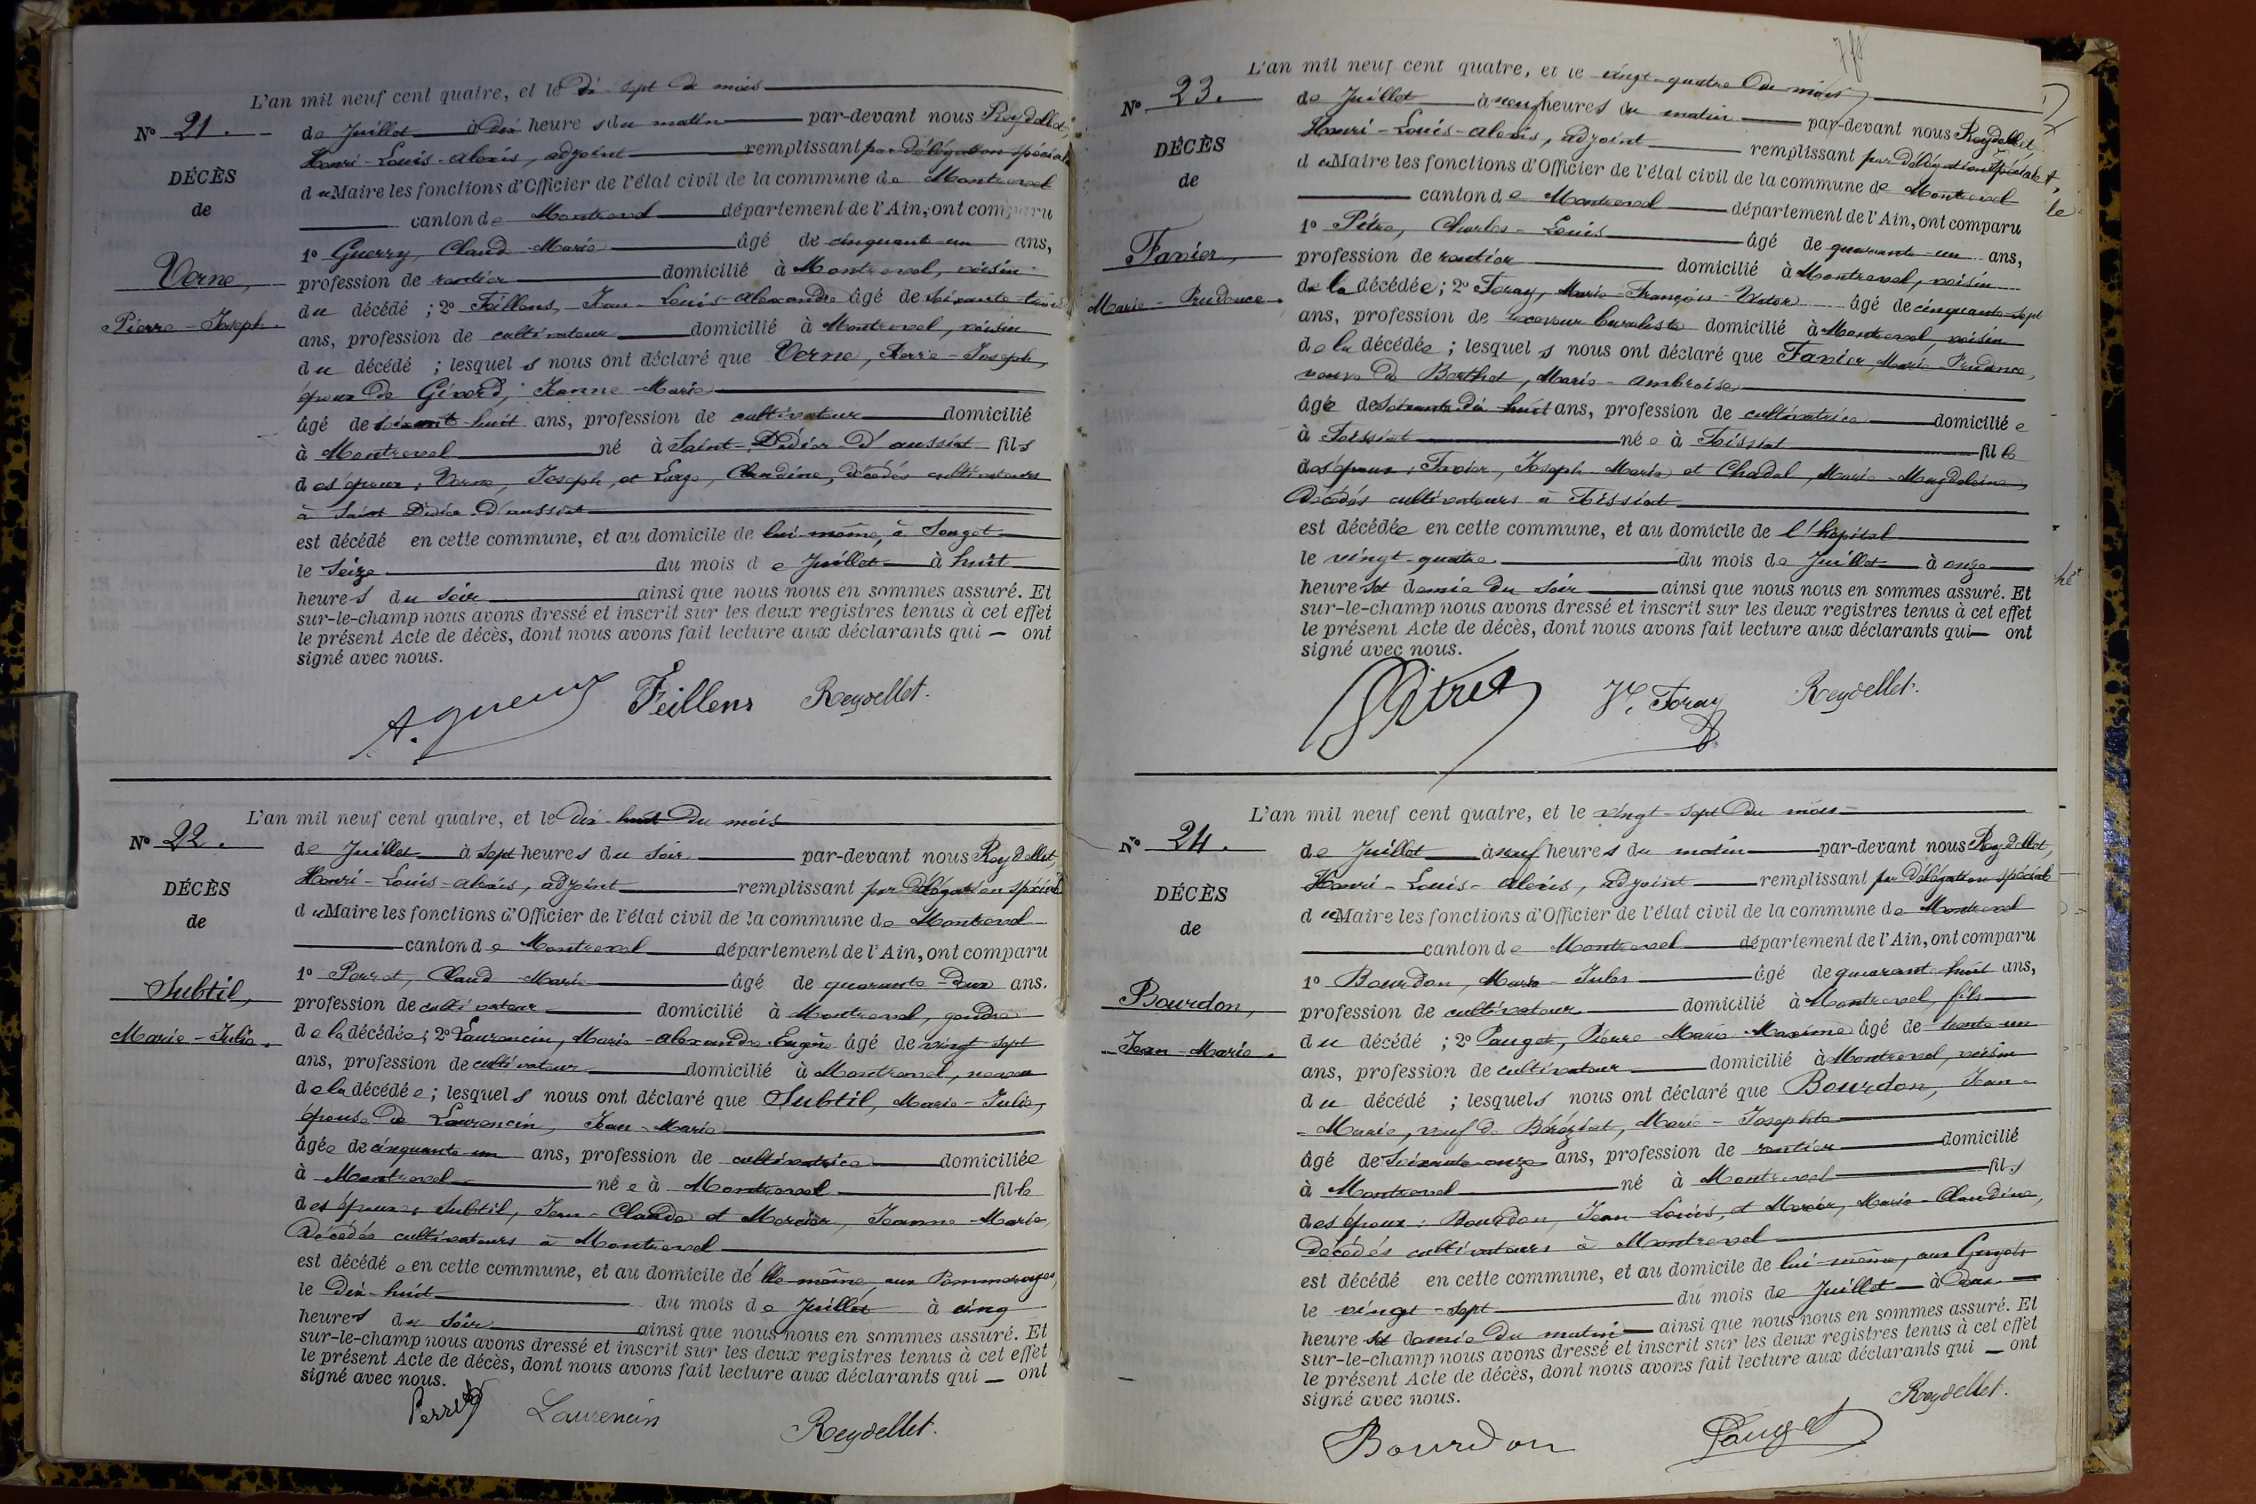 L'an mil neuf cent quatre, et le dix-sept du mois
N° 21.
de Juillet à dix heures du matin par-devant nous Reydellet,
Henri-Louis-Alexis, adjoint remplissant par délégation spéciale
DÉCÈS
du Maire les fonctions d'Officier de l'état civil de la commune de Montrevel
de
canton de Montrevel département de l'Ain, ont comparu
1° Guerry, Claude-Marie âgé de cinquante-un ans,
Verne,
profession de rentier domicilié à Montrevel, voisin
Pierre-Joseph.
du décédé ; 2° Feillens, Jean-Louis-Alexandre âgé de soixante-trois
ans, profession de cultivateur domicilié à Montrevel, voisin
du décédé ; lesquels nous ont déclaré que Verne, Pierre-Joseph,
époux de Girord, Jeanne-Marie
âgé de soixante-huit ans, profession de cultivateur domicilié
à Montrevel né à Saint-Didier d'aussiat fils
des époux : Verne, Joseph, et Large, Claudine, décédés cultivateurs
à Saint Didier d'aussiat
est décédé en cette commune, et au domicile de lui-même, à Songet
le seize du mois de Juillet à huit
heures du soir ainsi que nous nous en sommes assuré. Et
sur-le-champ nous avons dressé et inscrit sur les deux registres tenus à cet effet
le présent Acte de décès, dont nous avons fait lecture aux déclarants qui — ont
signé avec nous.
Feillens Reydellet.
L'an mil neuf cent quatre, et le dix-huit du mois
N° 22.
de Juillet à sept heures du soir par-devant nous Reydellet,
Henri-Louis-Alexis, adjoint remplissant par délégation spéciale
DÉCÈS
du Maire les fonctions d'Officier de l'état civil de la commune de Montrevel
de
canton de Montrevel département de l'Ain, ont comparu
1° Perret, Claude-Marie âgé de quarante-deux ans.
Subtil,
profession de cultivateur domicilié à Montrevel, gendre
Marie-Julie.
de la décédée ; 2° Laurencin, Marie-Alexandre-Eugène âgé de vingt-sept
ans, profession de cultivateur domicilié à Montrevel, neveu
de la décédée ; lesquels nous ont déclaré que Subtil, Marie-Julie,
épouse de Laurencin, Jean-Marie
âgée de cinquante-un ans, profession de cultivatrice domiciliée
à Montrevel née à Montrevel fille
des époux : Subtil, Jean-Claude et Mercier, Jeanne-Marie,
décédés cultivateurs à Montrevel
est décédée en cette commune, et au domicile d'elle-même, aux
le dix-huit du mois de Juillet à cinq
heures du soir ainsi que nous nous en sommes assuré. Et
sur-le-champ nous avons dressé et inscrit sur les deux registres tenus à cet effet
le présent Acte de décès, dont nous avons fait lecture aux déclarants qui — ont
signé avec nous.
Perret Laurencin Reydellet.
L'an mil neuf cent quatre, et le vingt-quatre du mois
N° 23.
de Juillet à neuf heures du matin par-devant nous Reydellet,
Henri-Louis-Alexis, adjoint remplissant par délégation spéciale
DÉCÈS
du Maire les fonctions d'Officier de l'état civil de la commune de Montrevel
de
canton de Montrevel département de l'Ain, ont comparu
1° Pitre, Charles-Louis âgé de quarante-un ans,
Favier,
profession de rentier domicilié à Montrevel, voisin
Marie-Prudence.
de la décédée ; 2° Foray, Marie-François-Victor âgé de cinquante-sept
ans, profession de receveur buraliste domicilié à Montrevel voisin
de la décédée ; lesquels nous ont déclaré que Favier, Marie-Prudence,
veuve de Berthet, Marie-Ambroise
âgée de soixante-dix-huit ans, profession de cultivatrice domiciliée
à Foissiat née à Foissiat fille
des époux : Favier, Joseph-Marie et Chadel, Marie-Magdeleine,
décédés cultivateurs à Foissiat
est décédée en cette commune, et au domicile de l'hôpital
le vingt-quatre du mois de Juillet à onze
heures et demie du soir ainsi que nous nous en sommes assuré. Et
sur-le-champ nous avons dressé et inscrit sur les deux registres tenus à cet effet
le présent Acte de décès, dont nous avons fait lecture aux déclarants qui — ont
signé avec nous.
Pitre Vr. Foray Reydellet.
L'an mil neuf cent quatre, et le vingt-sept du mois
N° 24.
de Juillet à neuf heures du matin par-devant nous Reydellet,
Henri-Louis-Alexis, adjoint remplissant par délégation spéciale
DÉCÈS
du Maire les fonctions d'Officier de l'état civil de la commune de Montrevel
de
canton de Montrevel département de l'Ain, ont comparu
1° Bourdon, Marie-Jules âgé de quarante-huit ans,
Bourdon,
profession de cultivateur domicilié à Montrevel, fils
Jean-Marie.
du décédé ; 2° Pauget, Pierre-Marie-Maxime âgé de trente-un
ans, profession de cultivateur domicilié à Montrevel, voisin
du décédé ; lesquels nous ont déclaré que Bourdon, Jean-
-Marie, veuf de Béréziat, Marie-Josephte
âgé de soixante-onze ans, profession de rentier domicilié
à Montrevel né à Montrevel fils
des époux : Bourdon, Jean-Louis, et Mercier, Marie-Claudine,
décédés cultivateurs à Montrevel
est décédé en cette commune, et au domicile de lui-même, aux Guyots
le vingt-sept du mois de Juillet à deux
heures et demie du matin ainsi que nous nous en sommes assuré. Et
sur-le-champ nous avons dressé et inscrit sur les deux registres tenus à cet effet
le présent Acte de décès, dont nous avons fait lecture aux déclarants qui — ont
signé avec nous.
Bourdon Pauget Reydellet.